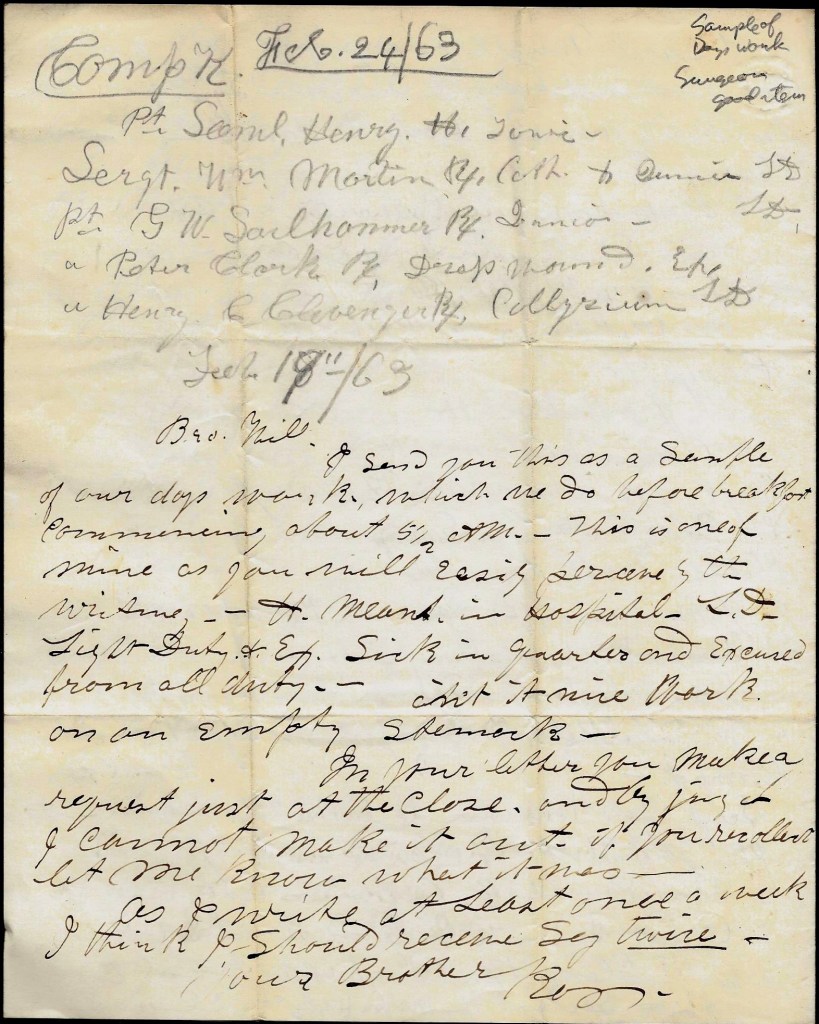 Sample of
Days work
Surgeon
good item
Comp K. Feb. 24/63
Pt. Saml. Henry. H. Tonic –
Sergt. Wm. Martin Rx. Cath. & LD
pt. G W Sailhammer Rx. – LD.
" Peter Clark Rx, Dress wound. Ex.
" Henry C Clevenger Rx, Collyrium LD
Feb. 18"/63
Bro. Will.
I send you this as a Sample
of our days work, which we do before breakfast
Commencing about 5 1/2 AM. – This is one of
mine as you will easily perceive by the
writing – – H. meant. in Hospital – L.D –
Light Duty. & Ex. Sick in quarter and Excused
from all duty. – – aint it nice Work
on an Empty Stomack –
In your letter you make a
request just at the Close. and by jing if
I cannot make it out. if you recollect
let me know what it was –
As I write at least once a week
I think I should receive Say twice –
Your Brother